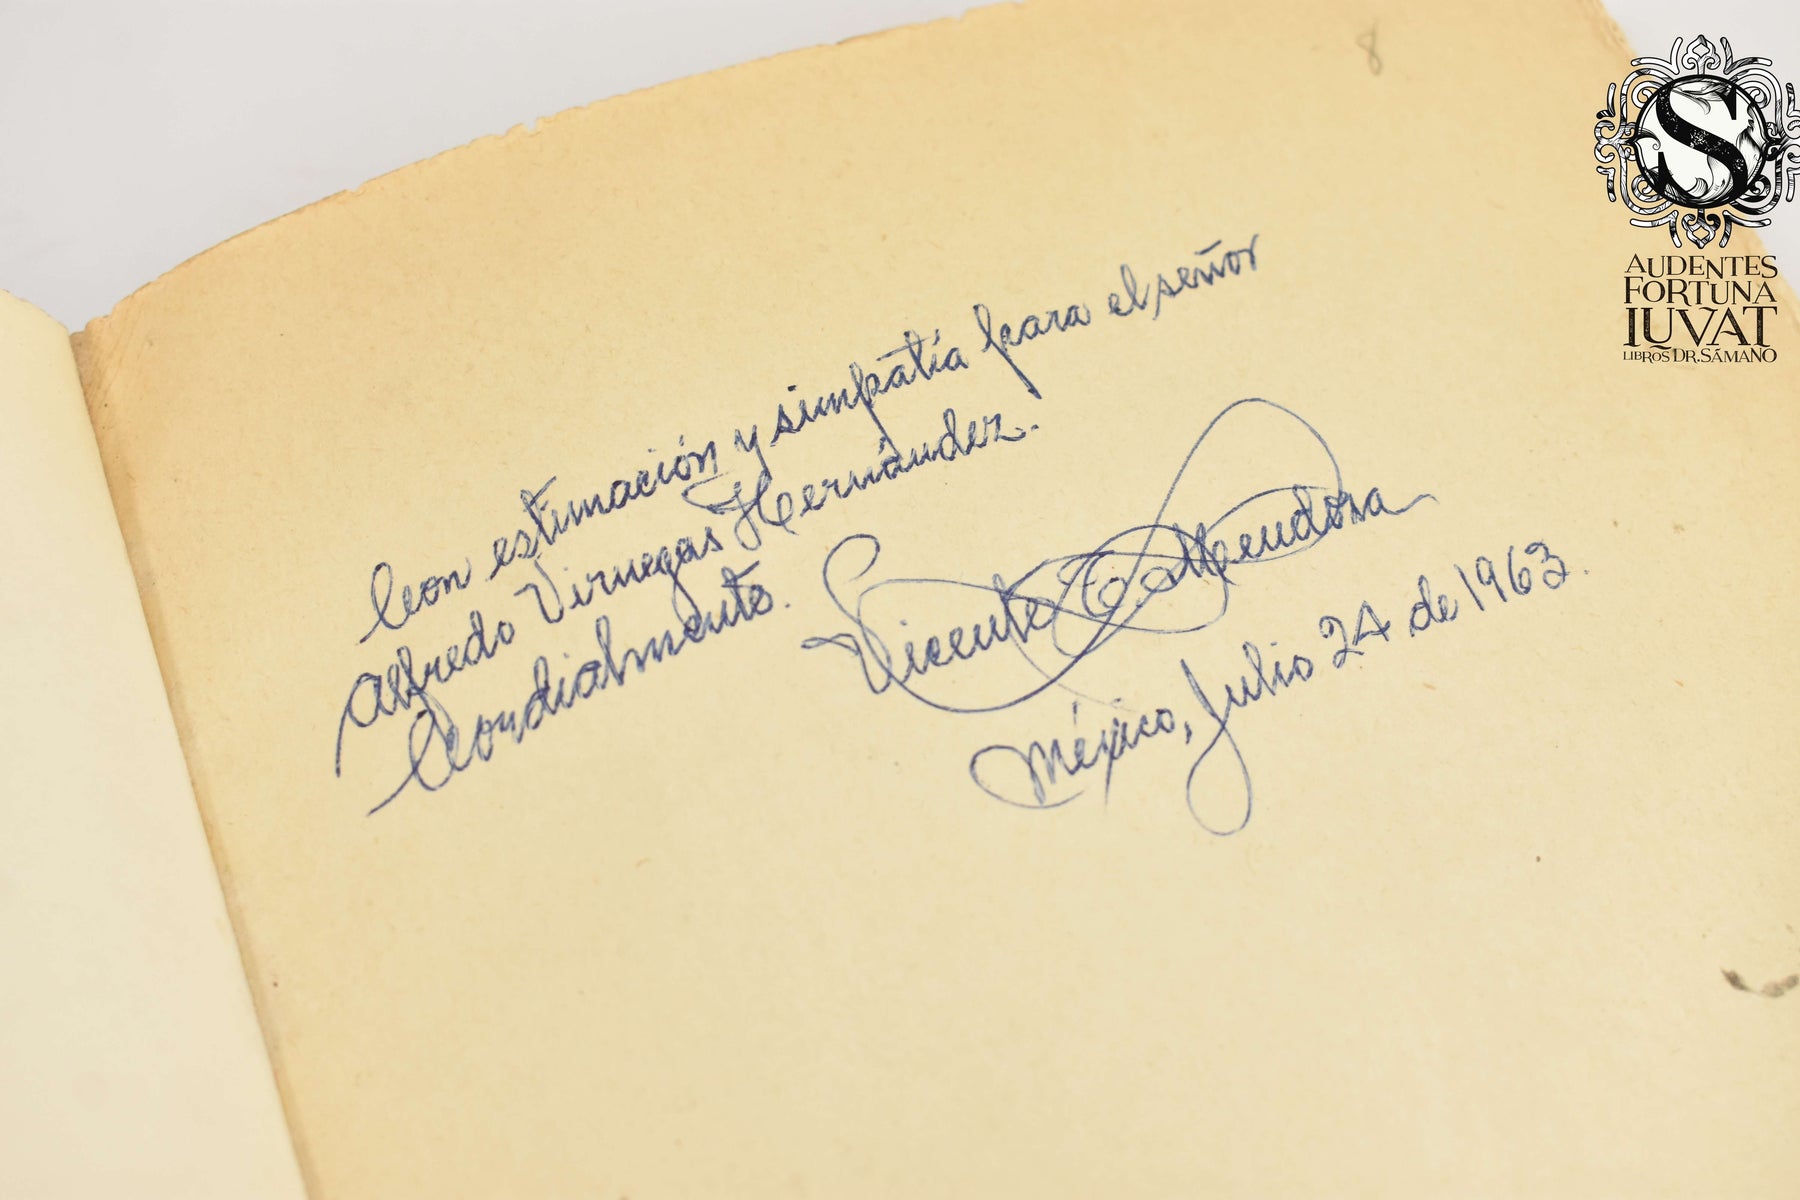 8
Con estimación y simpatía para el señor
Alfredo Viruegas Hernández.
Cordialmente.
Vicente T. Mendoza
México, Julio 24 de 1963.
S
AUDENTES
FORTUNA
IUVAT
LIBROS DR. SÁMANO